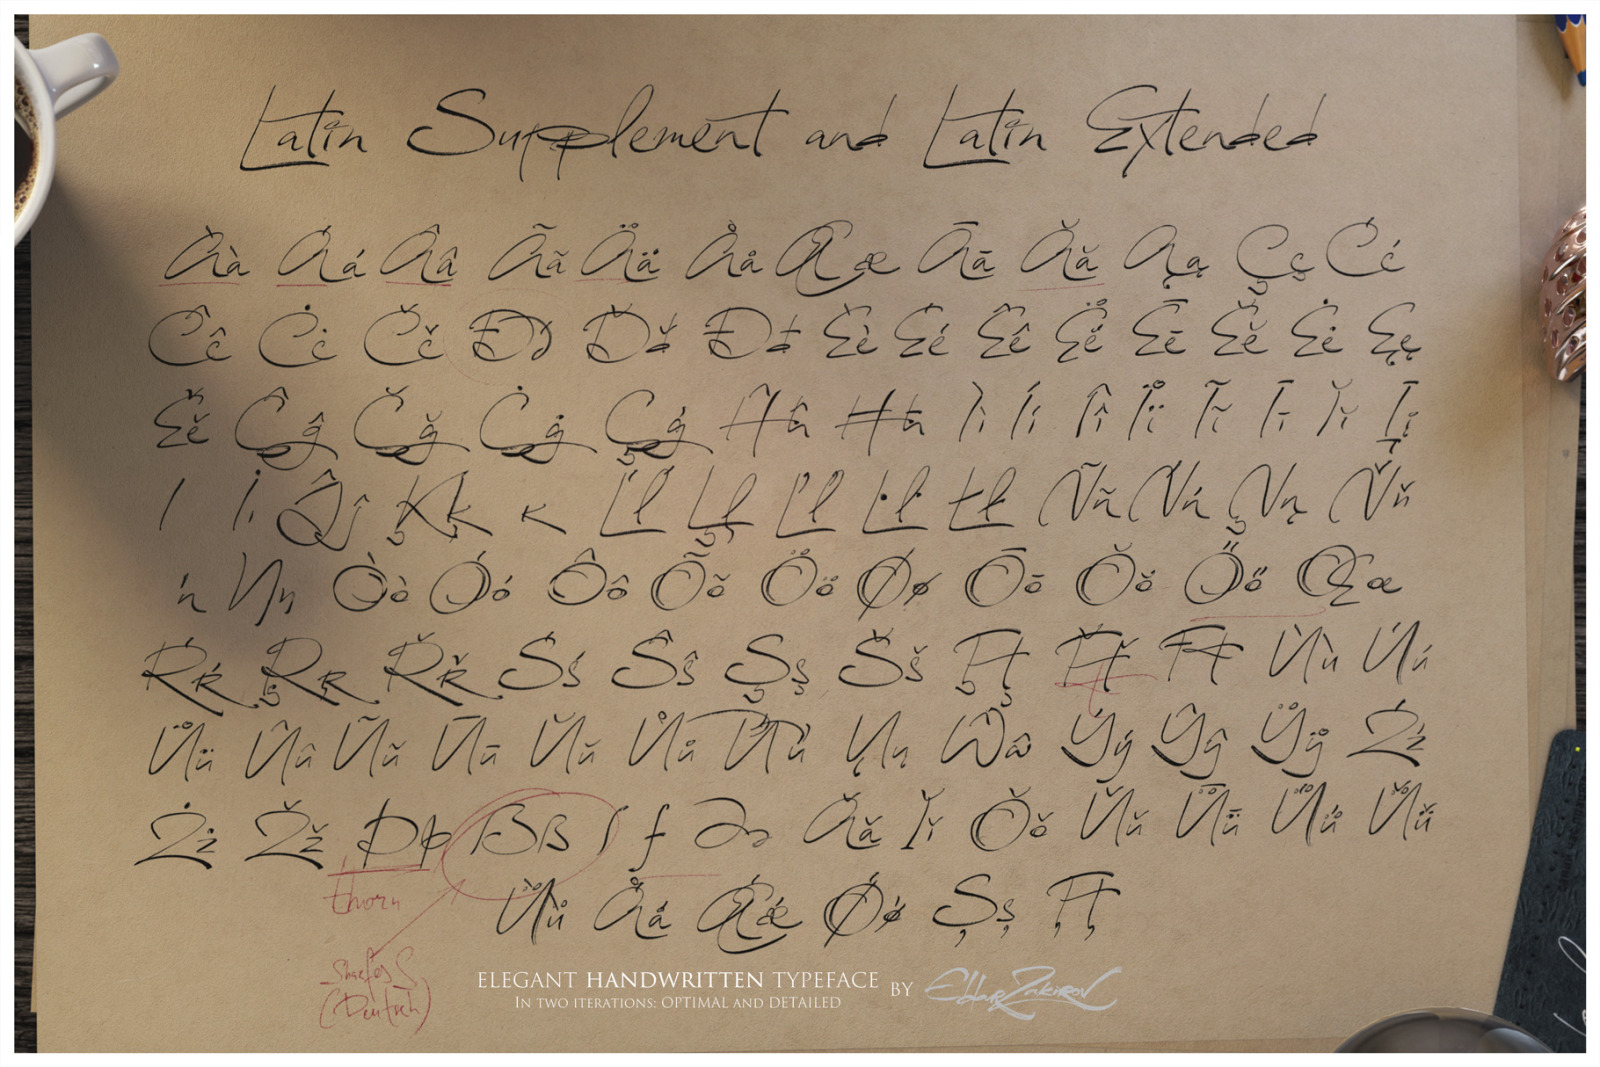 Latin Supplement and Latin Extended
Àà Áá Ââ Ãã Ää Åå Ææ Āā Ăă Ąą Çç Ćć
Ĉĉ Ċċ Čč Ðð Ďď Đđ Èè Éé Êê Ëë Ēē Ĕĕ Ėė Ęę
Ěě Ĝĝ Ğğ Ġġ Ģģ Ĥĥ Ħħ Ìì Íí Îî Ïï Ĩĩ Īī Ĭĭ Įį
ı İi Ĵĵ Ķķ ĸ Ĺĺ Ļļ Ľľ Ŀŀ Łł Ññ Ńń Ņņ Ňň
ŉ Ŋŋ Òò Óó Ôô Õõ Öö Øø Ōō Ŏŏ Őő Œœ
Ŕŕ Ŗŗ Řř Śś Ŝŝ Şş Šš Ţţ Ťť Ŧŧ Ùù Úú
Üü Ûû Ũũ Ūū Ŭŭ Ůů Űű Ųų Ŵŵ Ýý Ŷŷ Ÿÿ Źź
Żż Žž Þþ ẞß ſ ƒ Əə Ǎǎ Ǐǐ Ǒǒ Ǔǔ Ǖǖ Ǘǘ Ǚǚ
thorn
Ǜǜ Ǻǻ Ǽǽ Ǿǿ Șș Țț
Sharfes S
(Deutsch)
ELEGANT HANDWRITTEN TYPEFACE BY Eldar Zakirov
IN TWO ITERATIONS: OPTIMAL AND DETAILED